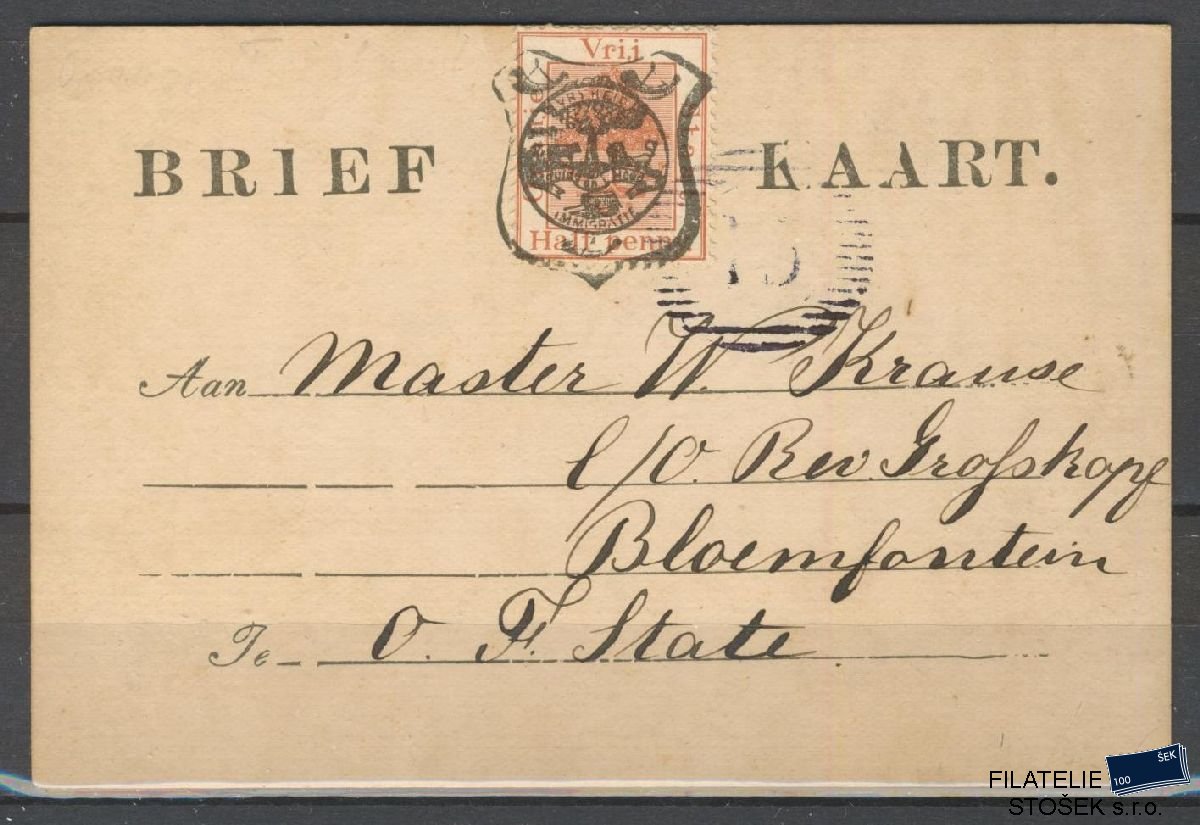 Vrij
BRIEF KAART.
IMMIGRATIE
Half penny
Aan Master W. Krause
C/O. Rev. Grofskopf
Bloemfontein
Te O. F. State
FILATELIE
STOŠEK s.r.o.
100 ŠEK